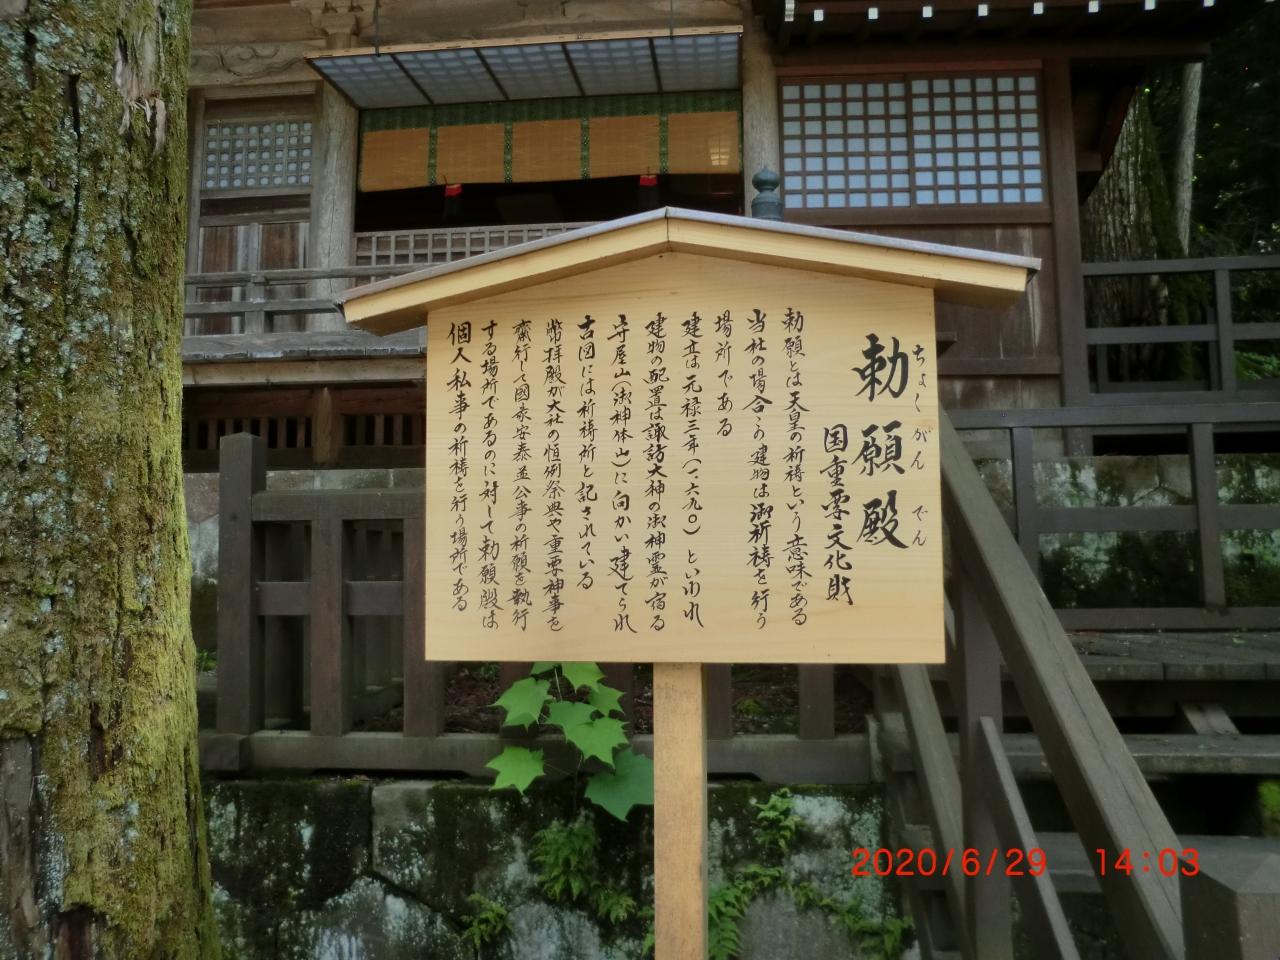 勅願殿
ちょくがんでん
国重要文化財
勅願とは天皇の祈祷という意味である
当社の場合この建物は御祈祷を行う
場所である
建立は元禄三年(一六九〇)といわれ
建物の配置は諏訪大神の御神霊が宿る
守屋山(御神体山)に向かい建てられ
古図には祈祷所と記されている
幣拝殿が大社の恒例祭典や重要神事を
齋行して國家安泰並公事の祈願を執行
する場所であるのに対して勅願殿は
個人私事の祈祷を行う場所である
2020/6/29 14:03